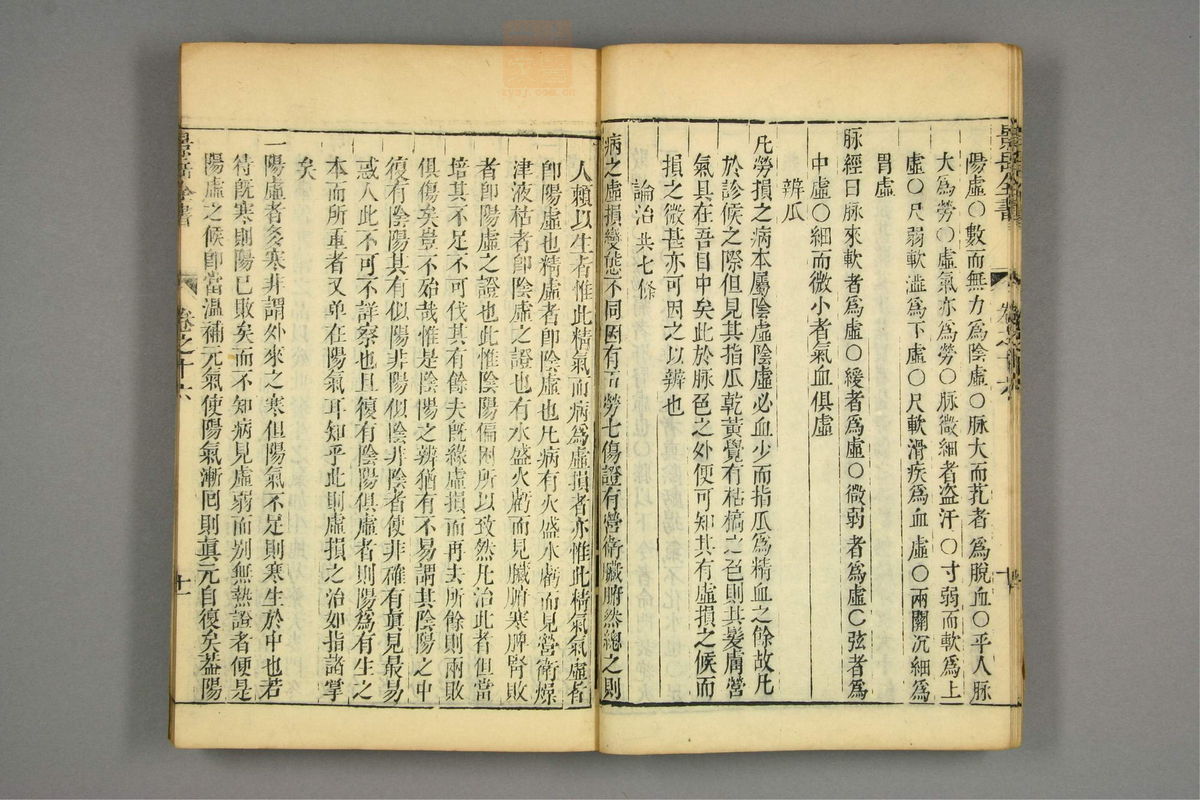 景岳全書
陽虛〇數而無力為陰虛〇脉大而芤者為脫血〇平人脉
大為勞〇虛氣亦為勞〇脉微細者盗汗〇寸弱而軟為上
虛〇尺弱軟濇為下虛〇尺軟滑疾為血虛〇兩關沉細爲
胃虛
脉經曰脉來軟者爲虛〇緩者爲虛〇微弱者爲虛〇弦者爲
中虛〇細而微小者氣血俱虛
辨爪
凢勞損之病本屬陰虛陰虛必血少而指爪爲精血之餘故凢
於診候之際但見其指爪乾黃覺有枯槁之色則其髮膚營
氣具在吾目中矣此於脉色之外便可知其有虛損之候而
損之微甚亦可因之以辨也
論治共七條
病之虛損變態不同因有五勞七傷證有營衛臟腑然總之則
人賴以生者惟此精氣而病爲虛損者亦惟此精氣氣虛者
卽陽虛也精虛者卽陰虛也凢病有火盛水虧而見營衛燥
津液枯者卽陰虛之證也有水盛火虧而見臟腑寒脾腎敗
者卽陽虛之證也此惟陰陽偏困所以致然凢治此者但當
培其不足不可伐其有餘夫旣緣虛損而再去所餘則兩敗
俱傷矣豈不殆哉惟是陰陽之辨猶有不易謂其陰陽之中
復有陰陽其有似陽非陽似陰非陰者使非確有眞見最易
惑人此不可不詳察也且復有陰陽俱虛者則陽爲有生之
本而所重者又单在陽氣耳知乎此則虛損之治如指諸掌
矣
一陽虛者多寒非謂外來之寒但陽氣不足則寒生於中也若
待旣寒則陽已敗矣而不知病見虛弱而別無熱證者便是
陽虛之候卽當温補元氣使陽氣漸囘則眞元自復矣葢陽
景岳全書
卷之十六
十一